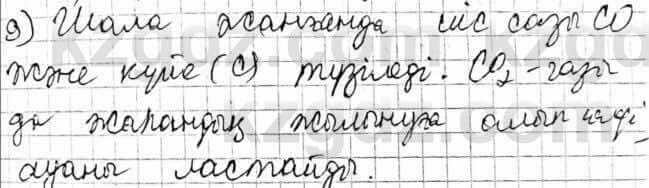 9) Шала жанғанда иіс газы CO
және күйе (С) түзіледі. CO₂-газы
да жаһандық жылынуға алып келеді,
ауаны ластайды.